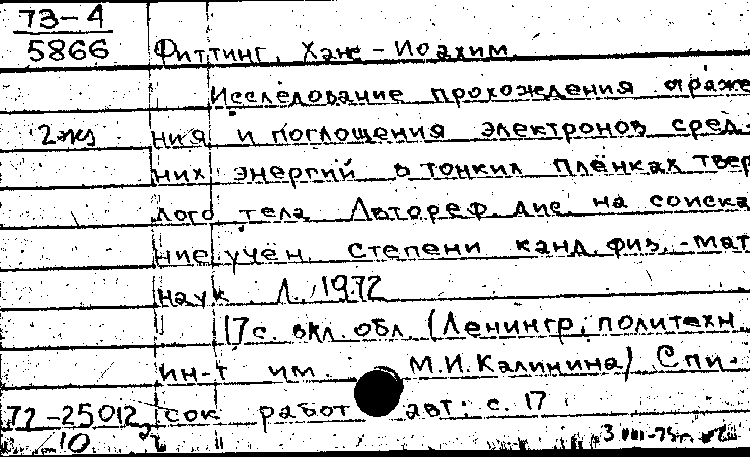 73-4
5866
Фиттинг, Ханс-Иоахим
Исследование прохождения отраже
2 экз
ния и поглощения электронов сред-
них энергий в тонких плёнках твер
дого тела. Автореф. дис. на соиска
ние учён. степени канд. физ.-мат
наук Л., 1972
17 с. вкл. обл. (Ленингр. политехн.
ин-т им. М.И. Калинина) Спи-
72-25012
сок работ авт.: с. 17
10